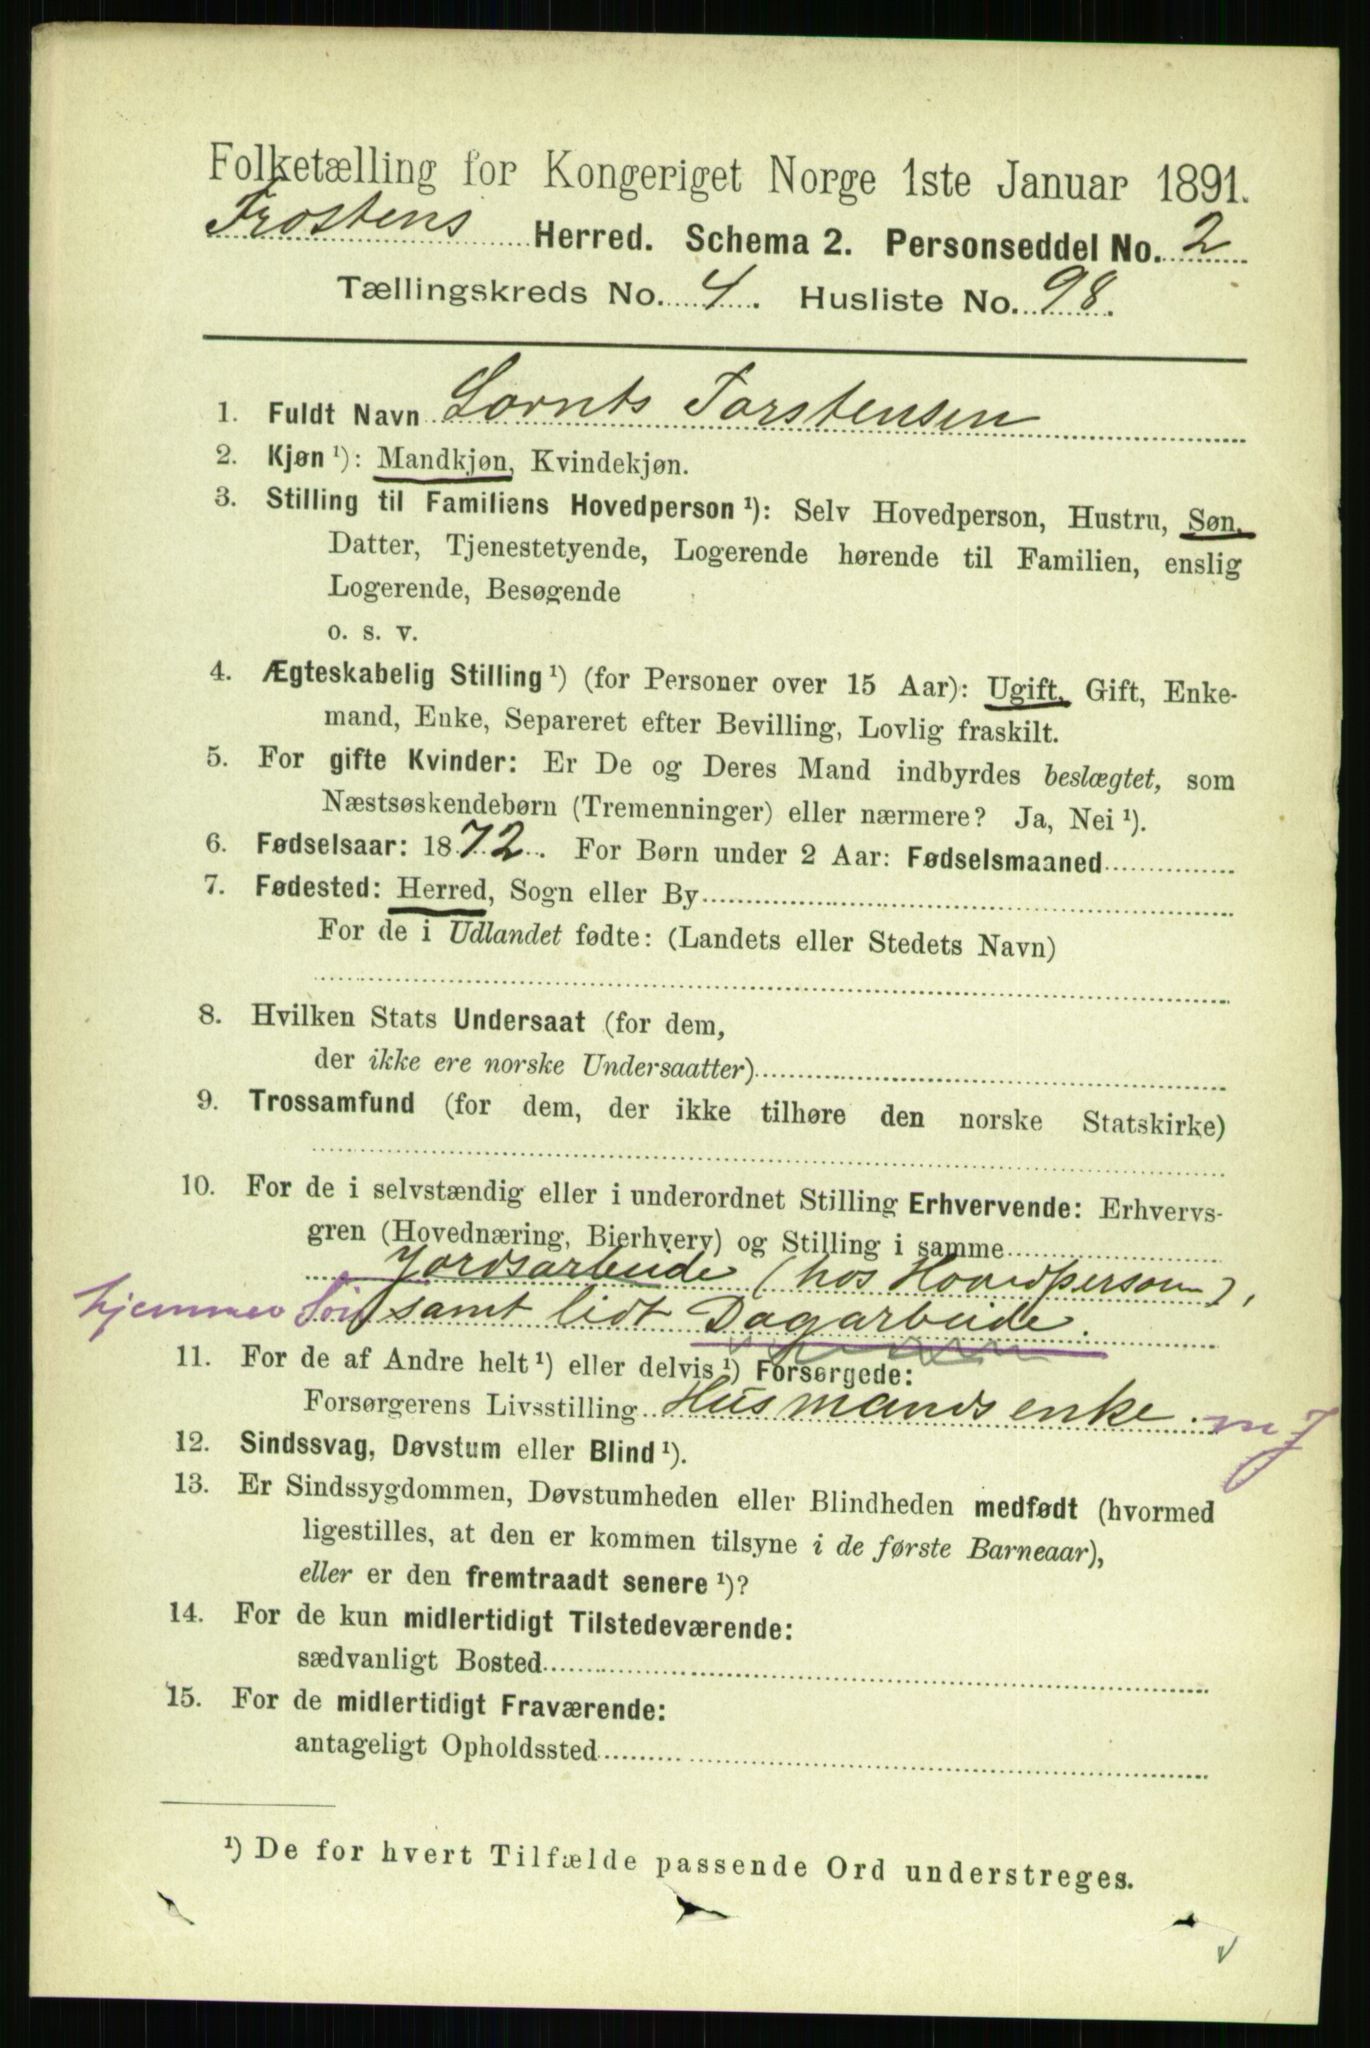 Folketælling for Kongeriget Norge 1ste Januar 1891.
Frostens Herred. Schema 2. Personseddel No. 2
Tællingskreds No. 4. Husliste No. 98.
1. Fuldt Navn Lornts Torstensen
2. Kjøn ¹): Mandkjøn, Kvindekjøn.
3. Stilling til Familiens Hovedperson ¹): Selv Hovedperson, Hustru, Søn,
Datter, Tjenestetyende, Logerende hørende til Familien, enslig
Logerende, Besøgende
o. s. v.
4. Ægteskabelig Stilling ¹) (for Personer over 15 Aar): Ugift, Gift, Enke-
mand, Enke, Separeret efter Bevilling, Lovlig fraskilt.
5. For gifte Kvinder: Er De og Deres Mand indbyrdes beslægtet, som
Næstsøskendebørn (Tremenninger) eller nærmere? Ja, Nei ¹).
6. Fødselsaar: 1872. For Børn under 2 Aar: Fødselsmaaned
7. Fødested: Herred, Sogn eller By
For de i Udlandet fødte: (Landets eller Stedets Navn)
8. Hvilken Stats Undersaat (for dem,
der ikke ere norske Undersaatter)
9. Trossamfund (for dem, der ikke tilhøre den norske Statskirke)
10. For de i selvstændig eller i underordnet Stilling Erhvervende: Erhvervs-
gren (Hovednæring, Bierhverv) og Stilling i samme
Jordsarbeide (hos Hovedperson),
hjemmev Søn samt lidt Dagarbeide.
11. For de af Andre helt ¹) eller delvis ¹) Forsørgede:
Forsørgerens Livsstilling Husmandsenke. m J
12. Sindssvag, Døvstum eller Blind ¹).
13. Er Sindssygdommen, Døvstumheden eller Blindheden medfødt (hvormed
ligestilles, at den er kommen tilsyne i de første Barneaar),
eller er den fremtraadt senere ¹)?
14. For de kun midlertidigt Tilstedeværende:
sædvanligt Bosted
15. For de midlertidigt Fraværende:
antageligt Opholdssted
¹) De for hvert Tilfælde passende Ord understreges.